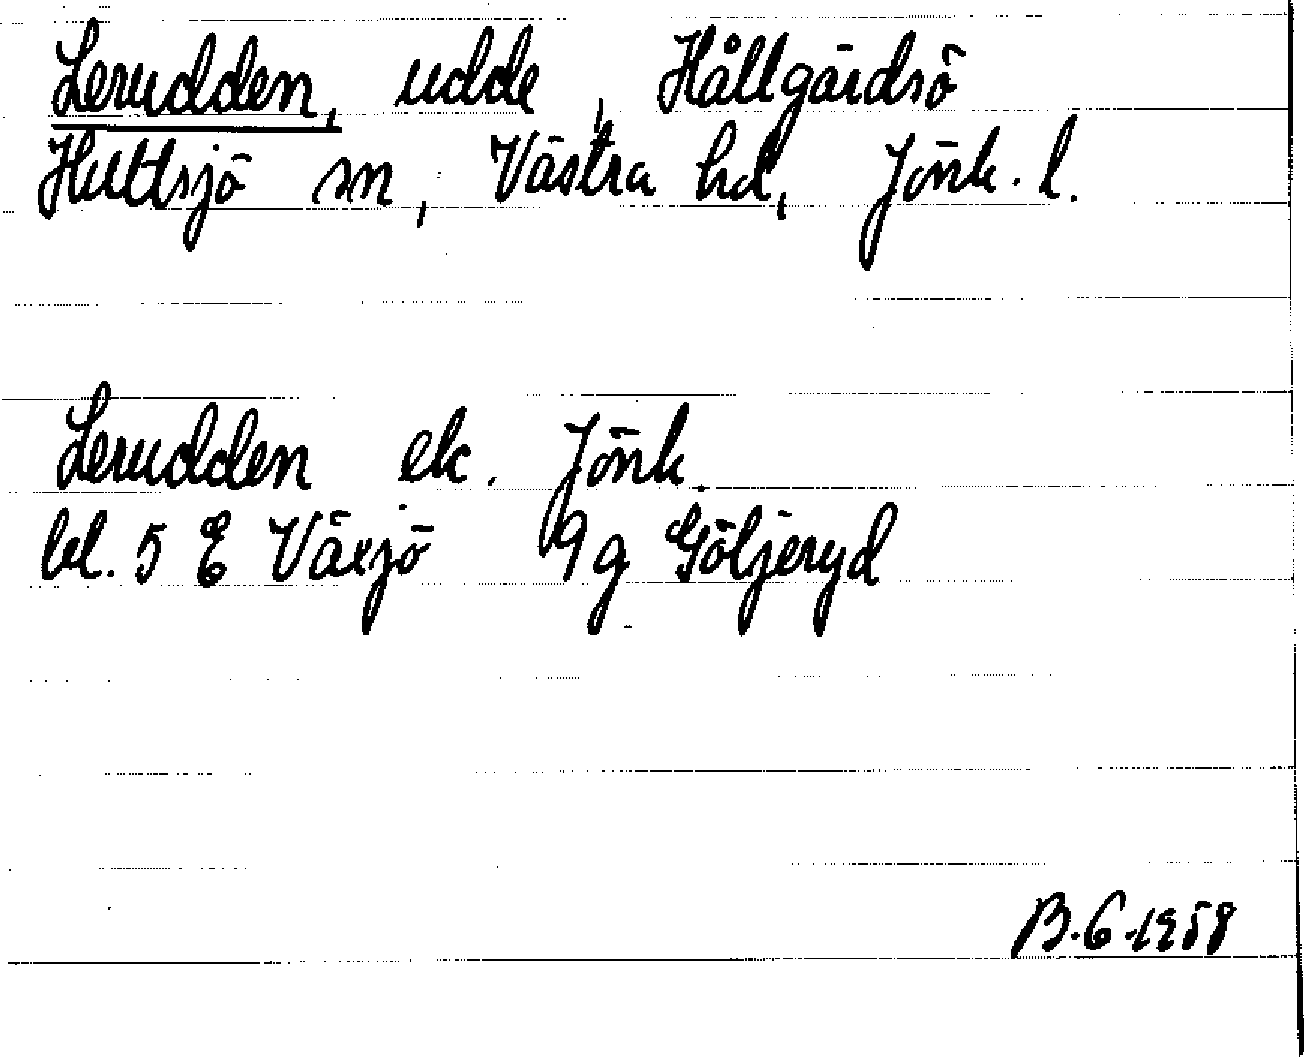 Lerudden, udde, Hållgårdsö
Hultsjö sn, Västra hd, Jönk. l.
Lerudden ek. Jönk.
bl. 5 E Växjö 9g Göljeryd
B.G. 1958